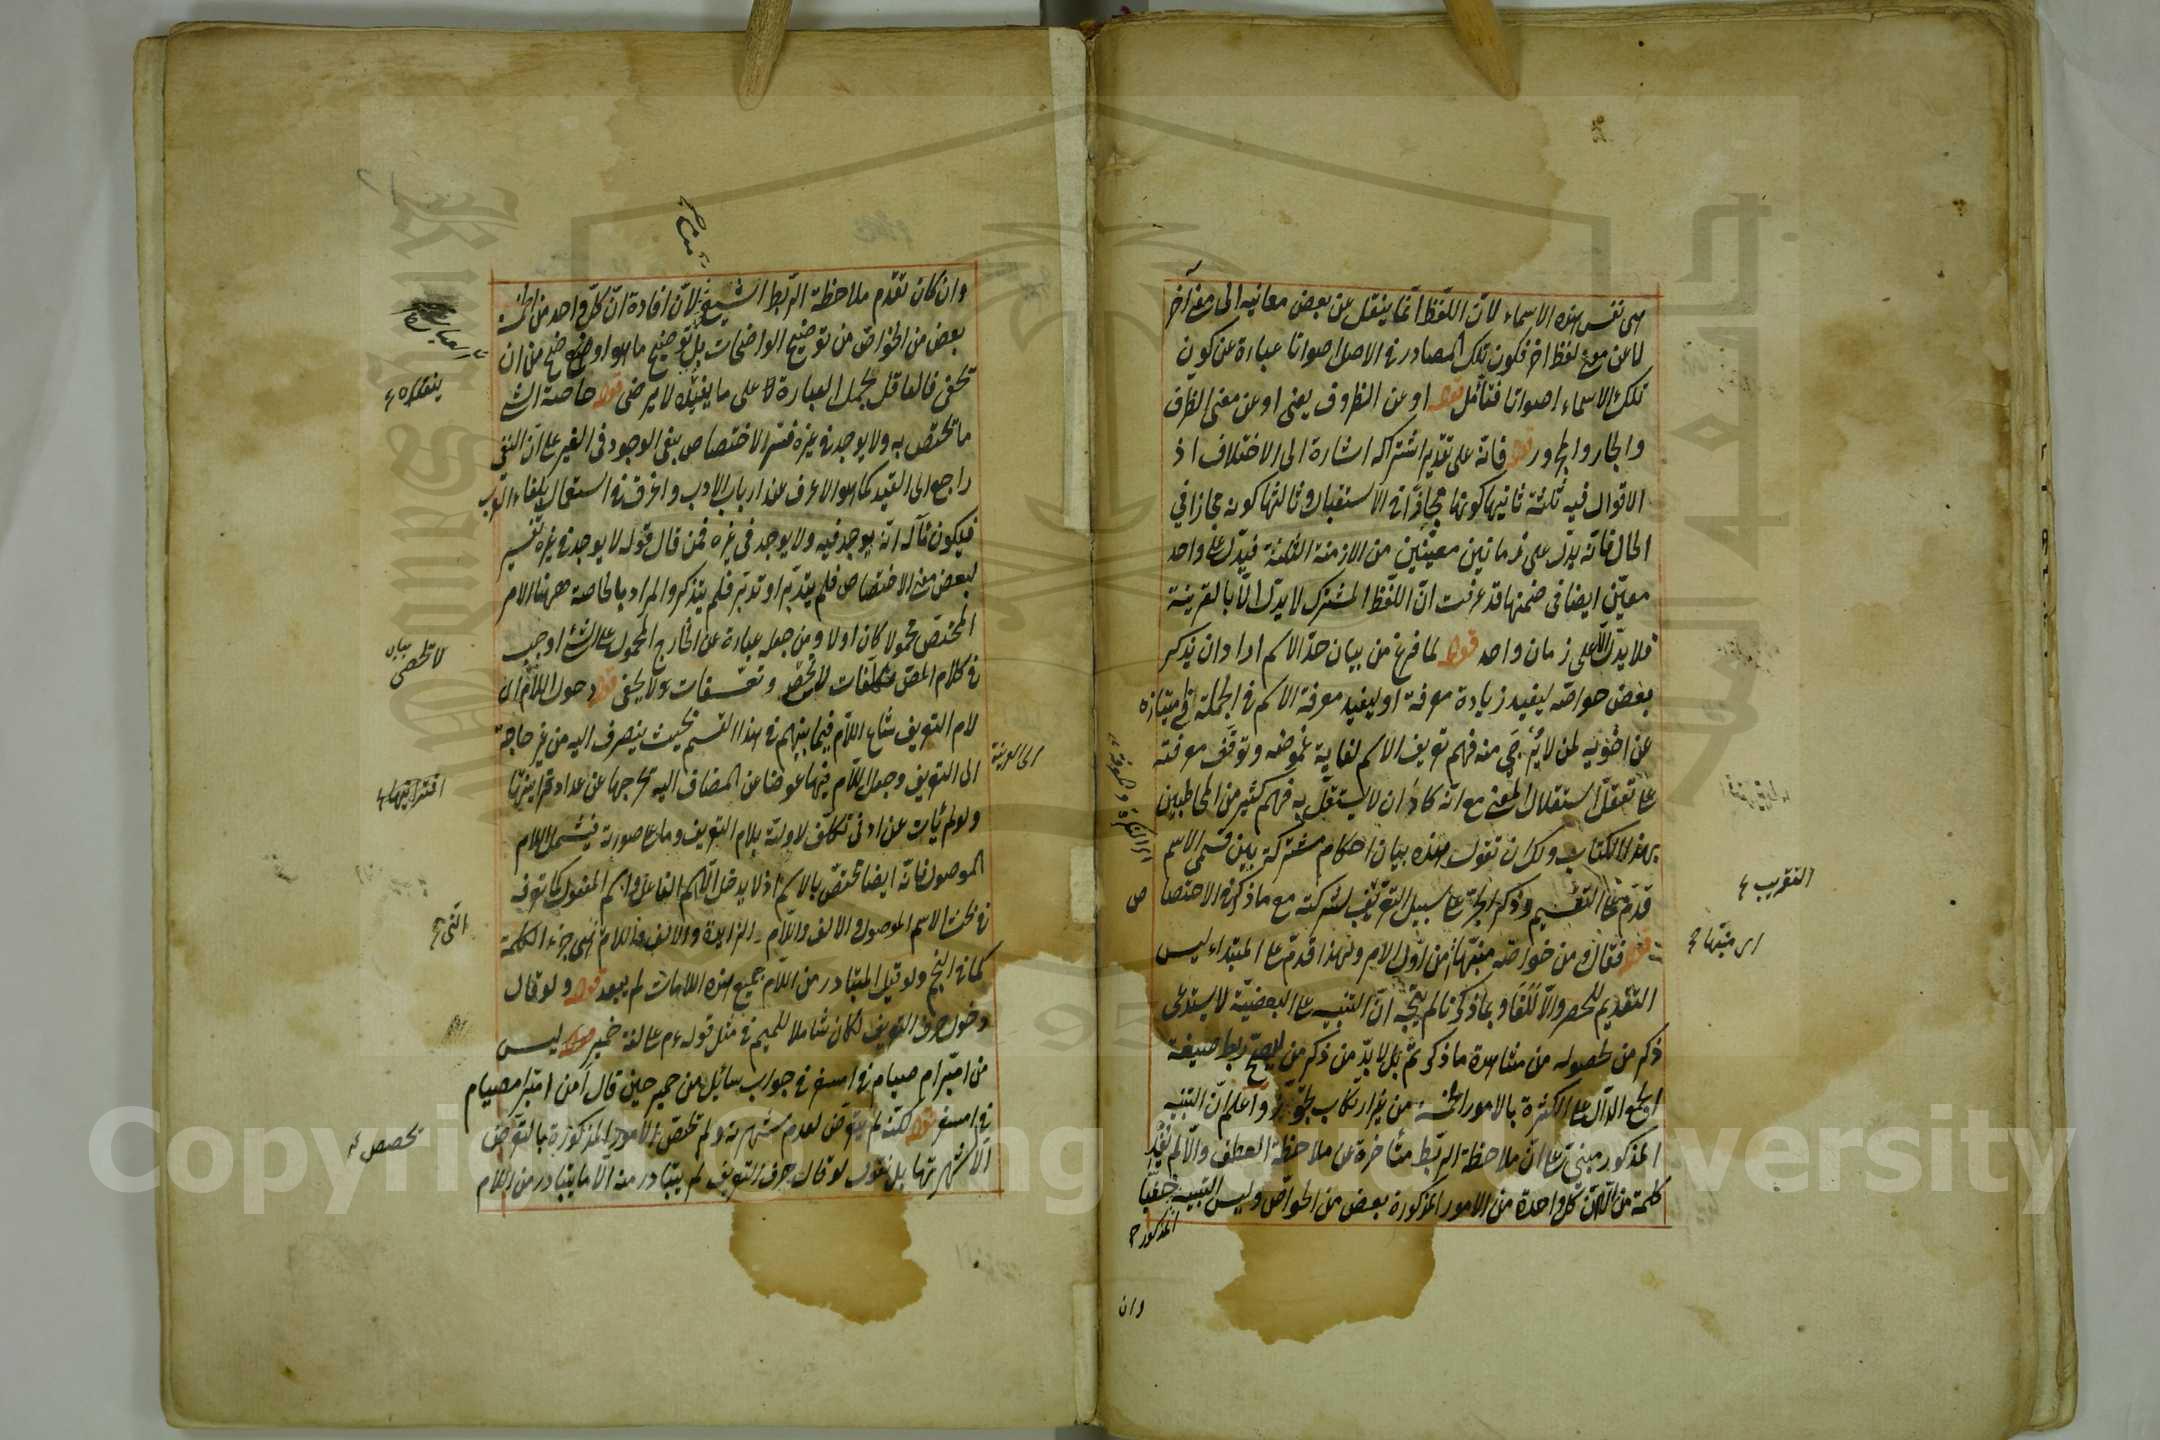 هى نفس هذه الاسماء لان اللفظ انما ينقل عن بعض معانيه الى معنى آخر
لا عن معنى لفظ اخر فكون تلك المصادر فى الاصل اصواتا عبارة عن كون
تلك الاسماء اصواتا فتأمل قوله او عن الظروف يعنى او عن معنى الظرف
والجار والمجرور قوله فانه على تقدير اشتراكه اشارة الى الاختلاف اذ
الاقوال فيه ثلثة ثانيها كونها مجازا فى الاستقبال وثالثها كونه مجازا في
الحال فانه يدل على زمانين معينين من الازمنة الثلثة فيدل على واحد
معين ايضا فى ضمنها قد عرفت ان اللفظ المشترك لا يدل الا بالقرينة
فلا يدل الا على زمان واحد قوله لما فرغ من بيان حد الاسم اراد ان يذكر
بعض خواصه ليفيد زيادة معرفة او ليفيد معرفة الاسم فى الجملة اى ميتازه
عن اخويه لمن لا يرجى منه فهم تعريف الاسم لغاية غموضه وتوقف معرفته
على تعقل استقلال المعنى مع انه كاد ان لا يستقل به فهم كثير من المخاطبين
بهذا الكتاب ولك ان تقول هذه بيان احكام مشتركة بين قسمى الاسم
قدم على التقسيم وذكر الجر على سبيل التوقيف لشركته مع ما ذكر فى الاختصا
ص
قوله فقال ومن خواصه منبها من اول الامر ولهذا قدم على المبتداء ليس
التقديم للحصر والا للغا وبما ذكرنا لم يتجه ان التنبيه على البعضية لا يستدعى
ذكر من لحصوله من مشاهدة ما ذكر ثم بل لا بد من ذكر من ليصح ربط صيغة
الجمع الدال على الكثرة بالامور الخمسة من غير ارتكاب تجوز واعلم ان التنبيه
المذكور مبنى على ان ملاحظة الربط متأخرة عن ملاحظة العطف والا لم تفد
كلمة من الا ان كل واحدة من الامور المذكورة بعض من الخواص وليس التنبيه خفيا
المذكور
التقريب
اى منبها
اى النكرة والمعرفة
وان
وان كان تقدم ملاحظة الربط لان افادة ان كل واحد من الخمسة
بعض من الخواص من توضيح الواضحات بل توضيح ما هو اوضح من ان
يخفى فالعاقل بحمل العبارة على ما يفيده لا يرضى قوله خاصة الشئ
ما تختص به ولا يوجد فى غيره فسر الاختصاص بنفى الوجود فى الغير على ان النفى
راجع الى القيد كما هو الاعرف عند ارباب الادب واعرق فى استعمال بلغاء العرب
فيكون مآله انه يوجد فيه ولا يوجد فى غيره فمن قال قوله لا يوجد فى غيره تفسير
لبعض معنى الاختصاص فلم يتدبر او تدبر فلم يتذكر والمراد بالخاصة ههنا الامر
المختص محمولا كان اولا ومن جعله عبارة عن الخارج المحمول على الشئ اوجب
فى كلام المص تكلفات وتعسفات ولا يخفى قوله دخول اللام اى
لام التعريف شاع اللام فيما بينهم فى هذا القسم بحيث ينصرف اليه من غير حاجة
الى التعريف وجعل اللام فيها عوضا عن المضاف اليه تخرجها عن عداد قرايبها
ولو لم يأت عن ادنى تكلف لاوله بلام التعريف وما على صورته فيشمل اللام
الموصول فانه ايضا تختص بالاسم اذ لا يدخل الا اسم الفاعل واسم المفعول كما تعرفه
فى بحث الاسم الموصول والالف واللام الزايدة والالف واللام التى جزء الكلمة
كما فى النجم ولو قيل المتبادر من اللام جميع هذه اللامات لم يبعد قوله ولو قال
دخول حرف التعريف لكان شاملا للميم فى مثل قوله عم على لغة حمير قوله ليس
من امبر ام صيام فى امسفر فى جواب سائل من حمير حين قال أمن امبر امصيام
فى امسفر قوله لكنه لم يتعرض لعدم شهرته ولم تختص الامور المذكورة بالتعرض
الا لشهرتها بل نقول لو قال حرف التعريف لم يتبادر منه الا ما يتبادر من اللام
العبارة
لا تحصى
اقترانها
التى
تخصص
الى القرينة